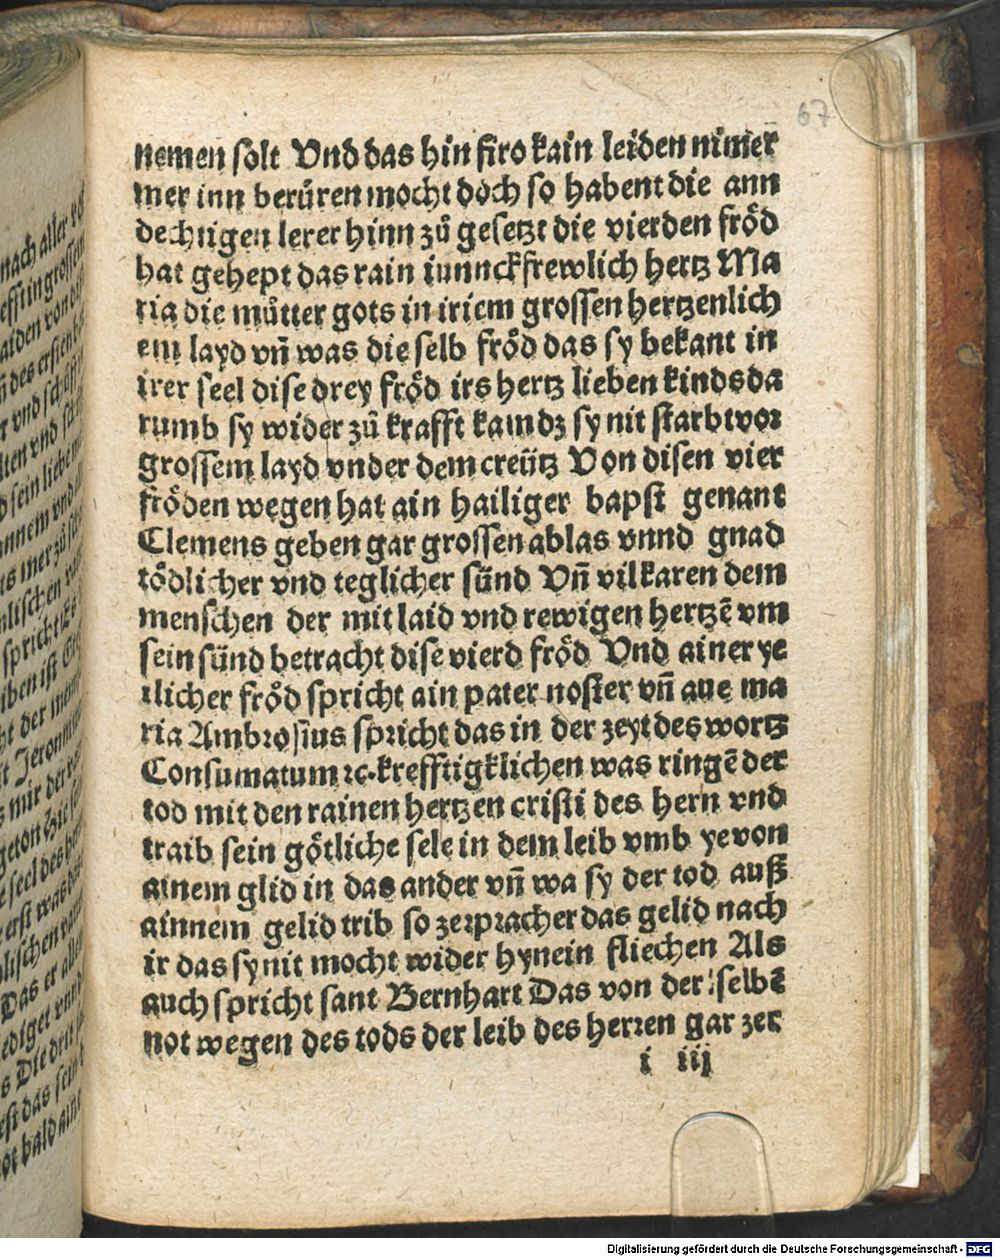 67
nemen solt Vnd das hin firo kain leiden nim̄er
mer inn berüren mocht doch so habent die ann
dechtigen lerer hinn zů gesetzt die vierden fröd
hat gehept das rain iunnckfrewlich hertz Ma
ria die můtter gots in iriem grossen hertzenlich
em layd vn̄ was die selb fröd das sy bekant in
irer seel dise drey fröd irs hertz lieben kinds da
rumb sy wider zů krafft kam dz sy nit starb vor
grossem layd vnder dem creütz Von disen vier
fröden wegen hat ain hailiger bapst genant
Clemens geben gar grossen ablas vnnd gnad
tödlicher vnd teglicher sünd Vn̄ vil karen dem
menschen der mit laid vnd rewigen hertzē vm
sein sünd betracht dise vierd fröd Vnd ainer ye
tlicher fröd spricht ain pater noster vn̄ aue ma
ria Ambrosius spricht das in der zeyt des wortz
Consumatum ꝛc. krefftigklichen was ringē der
tod mit den rainen hertzen cristi des hern vnd
traib sein götliche sele in dem leib vmb ye von
ainem glid in das ander vn̄ wa sy der tod auß
ainnem gelid trib so zerprach er das gelid nach
ir das sy nit mocht wider hynein fliechen Als
auch spricht sant Bernhart Das von der selbē
not wegen des tods der leib des herren gar zer
i iii
Digitalisierung gefördert durch die Deutsche Forschungsgemeinschaft - DFG